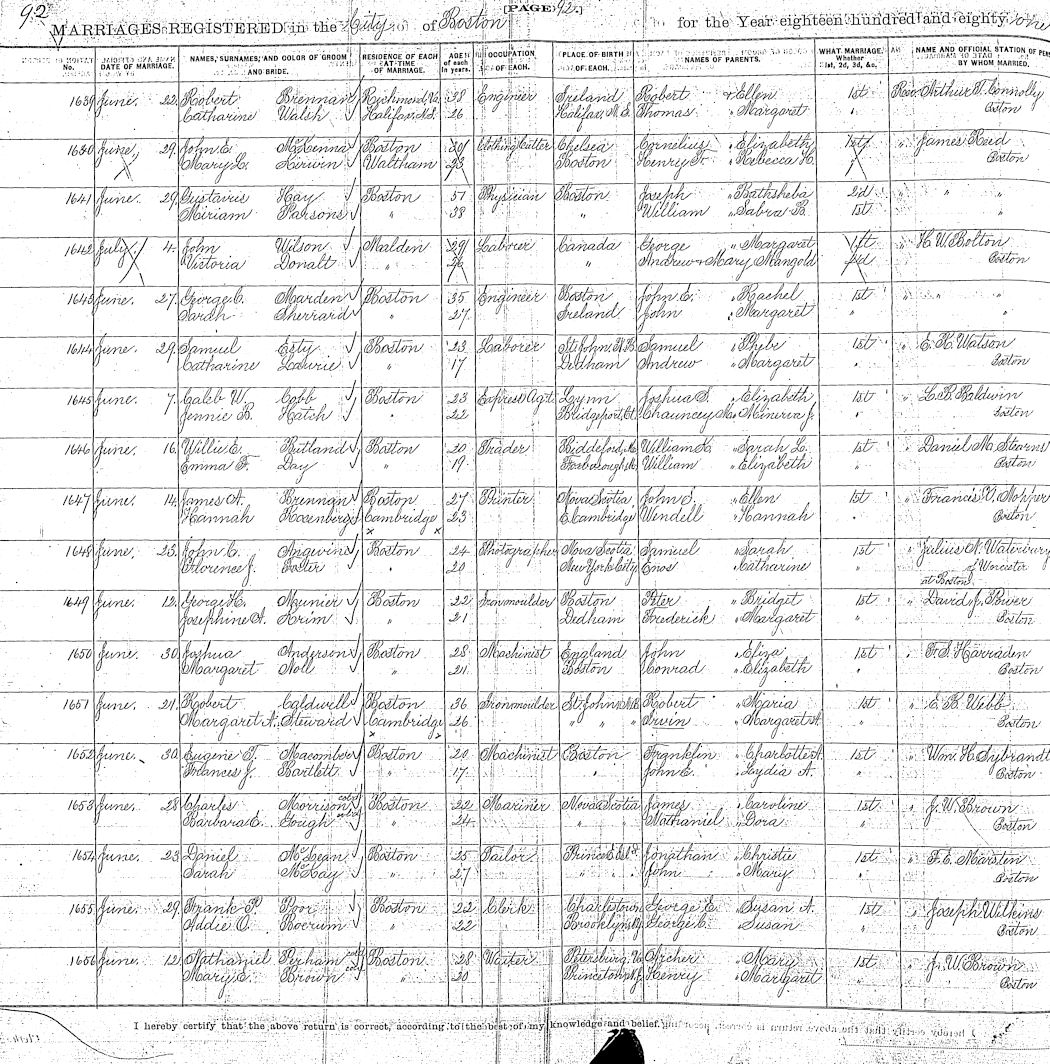 92
[PAGE 92.]
MARRIAGES REGISTERED in the City of Boston for the Year eighteen hundred and eighty one
No. DATE OF MARRIAGE. NAMES, SURNAMES, AND COLOR OF GROOM AND BRIDE. RESIDENCE OF EACH AT TIME OF MARRIAGE. AGE of each in years. OCCUPATION OF EACH. PLACE OF BIRTH OF EACH. NAMES OF PARENTS. WHAT MARRIAGE. Whether 1st, 2d, 3d, &c. NAME AND OFFICIAL STATION OF PER BY WHOM MARRIED.
1639 June. 22. Robert Brennan Richmond, Va. 38 Engineer Ireland Robert & Ellen 1st Rev. Arthur T. Connolly
Catharine Walsh Halifax, N.S. 26 Halifax, N.S. Thomas " Margaret " Boston
1630 June, 29. John E. McKenna Boston 30 Clothing Cutter Chelsea Cornelius " Elizabeth 1st " James Reid
Mary L. Kirwin Waltham 23 Boston Henry F. " Rebecca H. Boston
1641 June. 29. Gustavis Hay Boston 51 Physician Boston Joseph " Bathsheba 2d " " "
Miriam Parsons " 38 " William " Sabra B. 1st "
1642 July 4. John Wilson Malden 29 Laborer Canada George " Margaret 1st " H. W. Bolton
Victoria Donalt " 26 " Andrew & Mary Mangold 2d Boston
1643 June. 27. George C. Marden Boston 35 Engineer Boston John E. " Rachel 1st " " "
Sarah Sherrard " 27 Ireland John " Margaret " "
1644 June. 29. Samuel Esty Boston 23 Laborer St. John, N.B. Samuel " Phebe 1st " E. K. Watson
Catharine Lawrie " 17 Dedham Andrew " Margaret " Boston
1645 June. 7. Caleb W. Cobb Boston 23 Express Agt. Lynn Joshua S. " Elizabeth 1st " L. B. Baldwin
Jennie B. Hatch " 22 Bridgeport, Ct. Chauncey " Minerva J. " Boston
1646 June. 16. Willie E. Rutland Boston 20 Trader Biddeford, Me. William H. " Sarah L. 1st " Daniel M. Stearns
Emma F. Day " 19 Foxborough, M. William " Elizabeth " Boston
1647 June. 14. James A. Brennan Boston 27 Printer Nova Scotia John S. " Ellen 1st " Francis
Hannah Rosenberg Cambridge 23 E. Cambridge Wendell " Hannah " Boston
x x
1648 June. 23. John C. Angwins Boston 24 Photographer Nova Scotia Samuel " Sarah 1st " Julius N. Waterbury
Florence J. Foster " 20 New York City Enos " Catharine " of Worcester
at Boston
1649 June. 12. George H. Meunier Boston 22 Ironmoulder Boston Peter " Bridget 1st " David J. Power
Josephine A. Krim " 21 Dedham Frederick " Margaret " Boston
1650 June. 30. Joshua Anderson Boston 28 Machinist England John " Eliza 1st " F. S. Harraden
Margaret Noll " 21 Boston Conrad " Elizabeth " Boston
1651 June. 21. Robert Caldwell Boston 36 Ironmoulder St. John, N.B. Robert " Maria 1st " E. B. Webb
Margaret A. Steward Cambridge 26 " " " Irwin " Margaret A. " Boston
x x
1652 June. 30. Eugene T. Macomber Boston 20 Machinist Boston Franklin " Charlotte A. 1st " Wm. H. Sybrandt
Frances J. Bartlett " 17 " John E. " Lydia A. " Boston
1653 June. 28 Charles Morrison col'd Boston 22 Mariner Nova Scotia James " Caroline 1st " J. W. Brown
Barbara E. Gough col'd " 24 " " Nathaniel " Dora " Boston
1654 June. 23 Daniel McLean Boston 25 Tailor Prince E. Isl'd Jonathan " Christie 1st " F. E. Marsten
Sarah McKay " 27 " " " John " Mary " Boston
1655 June. 29. Frank P. Poor Boston 22 Clerk Charlestown George E. " Susan A. 1st " Joseph Wilkins
Sadie C. Boerum " 22 Brooklyn, N.Y. George C. " Susan " Boston
1656 June. 12. Nathaniel Perham col'd Boston 28 Waiter Petersburg, Va. Archer " Mary 1st " J. W. Brown
Mary E. Brown col'd " 20 Princeton, N.J. Henry " Margaret " Boston
I hereby certify that the above return is correct, according to the best of my knowledge and belief.